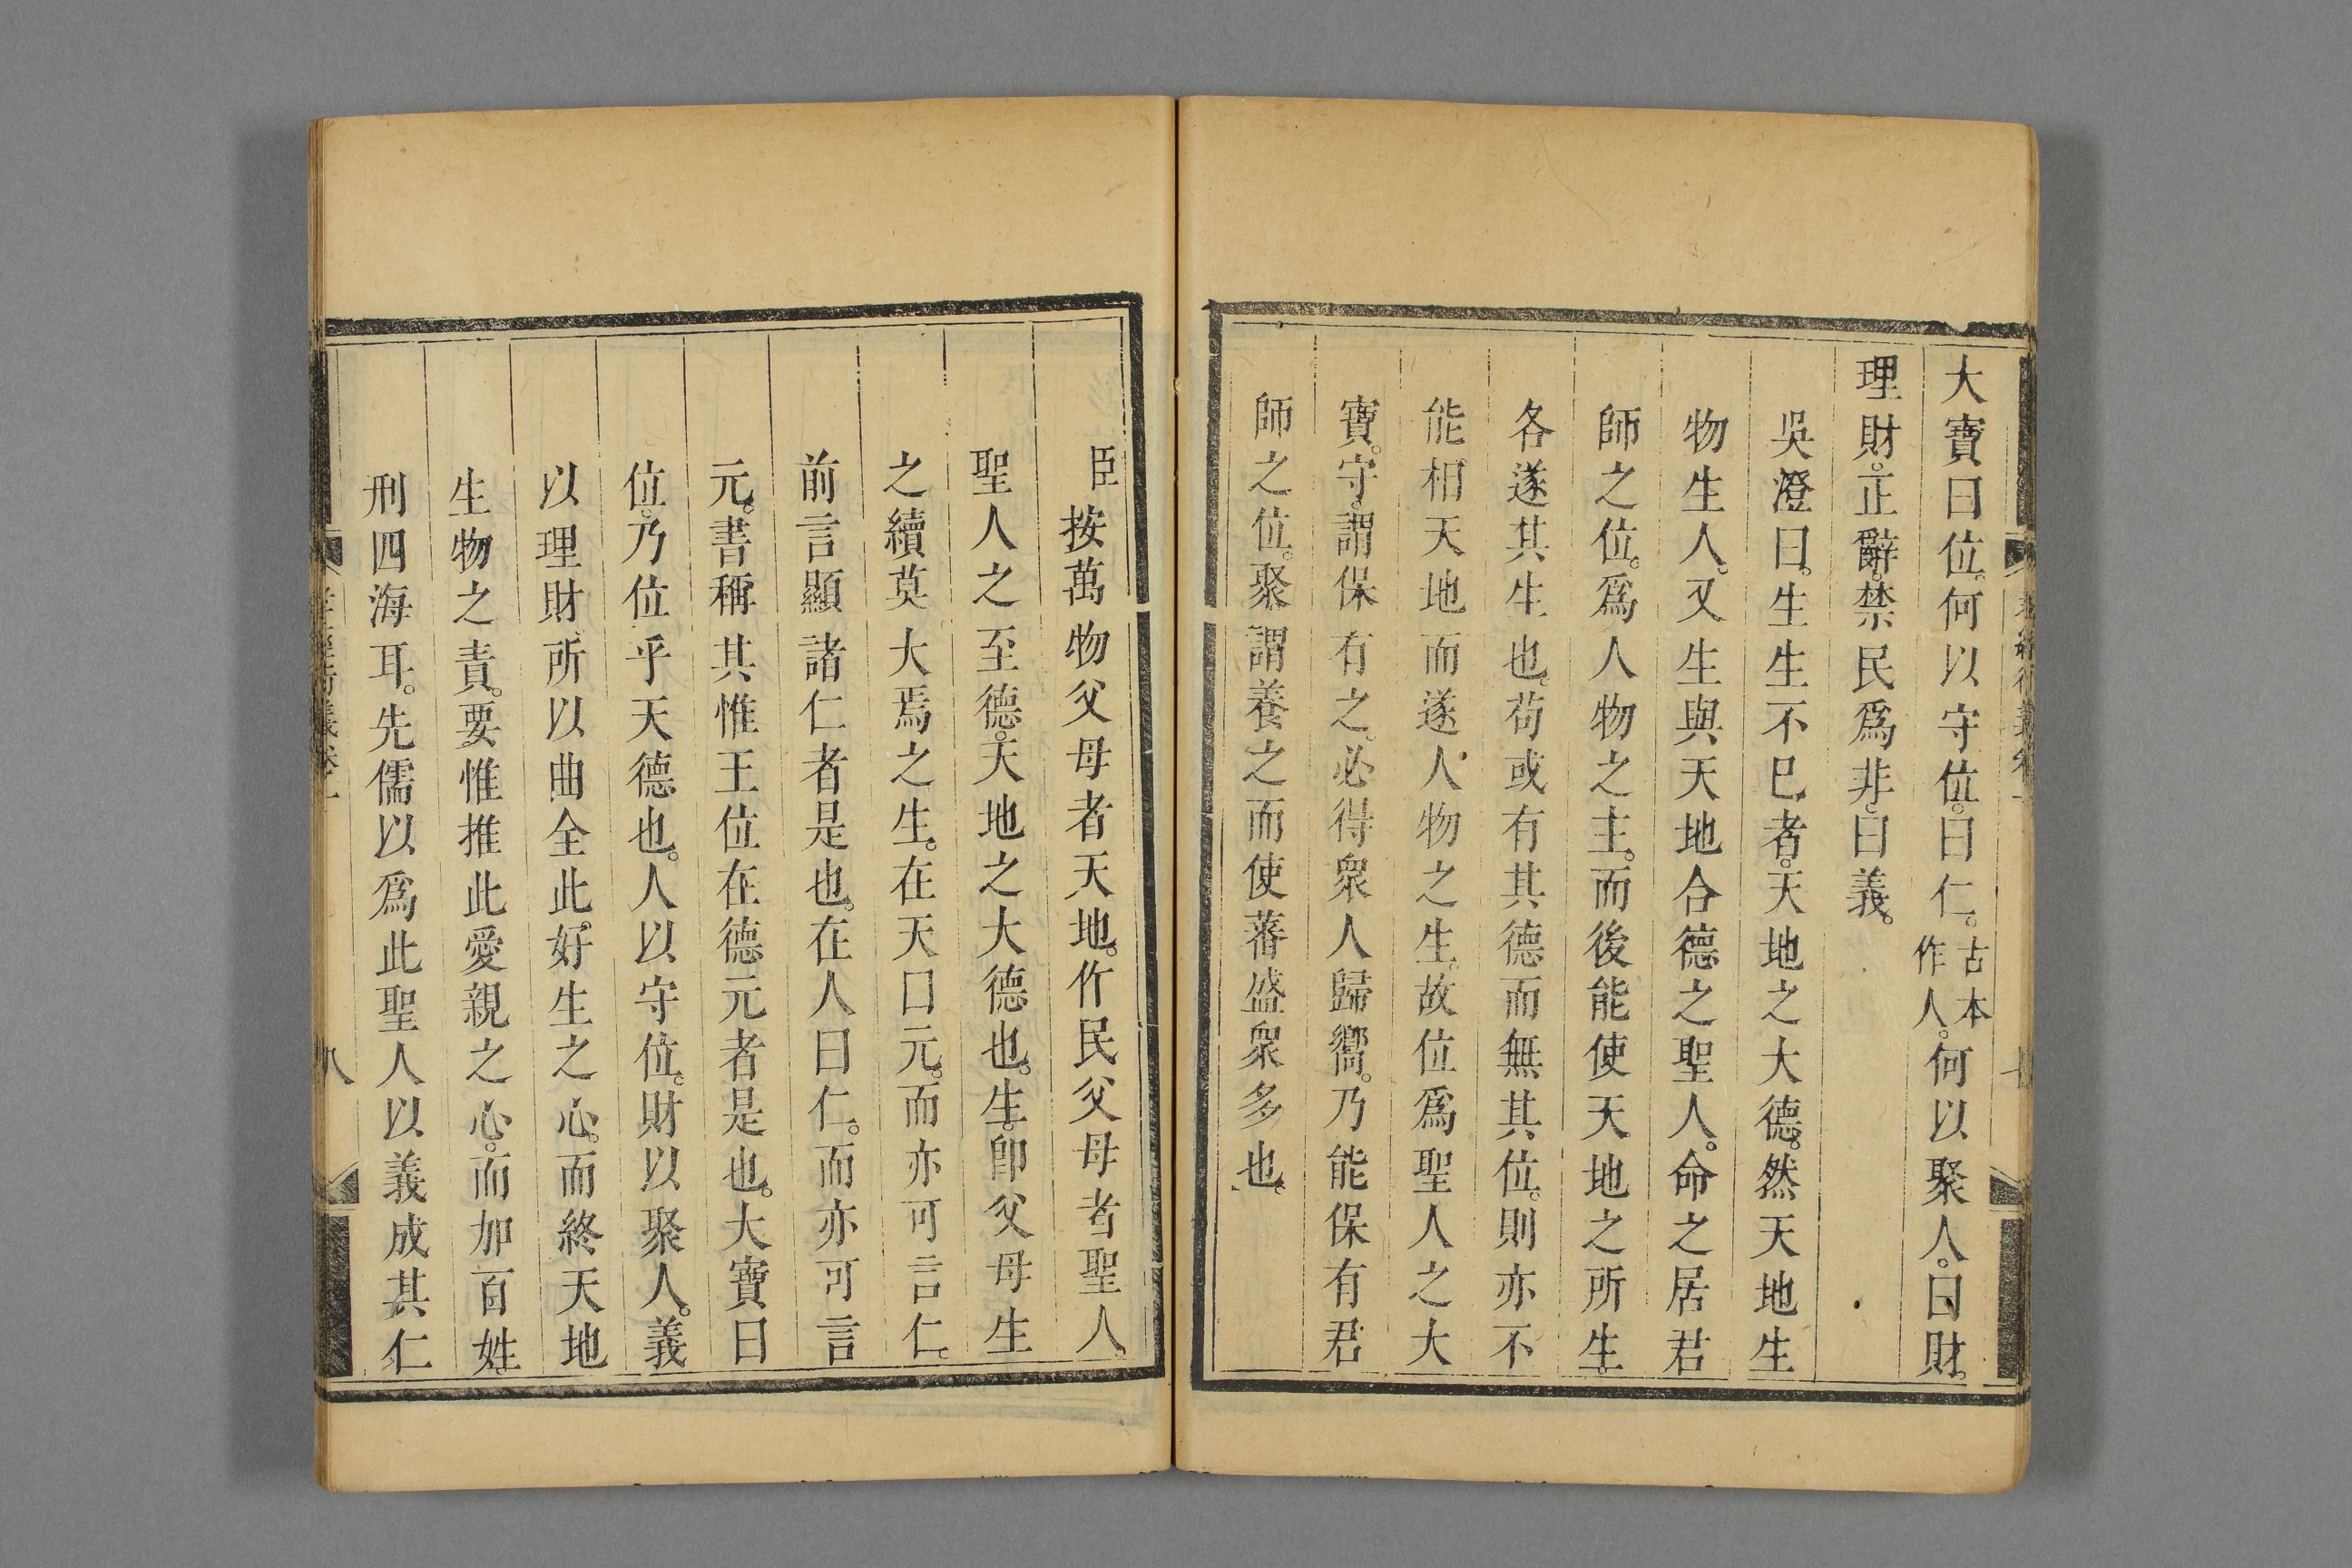 大寶曰位。何以守位。曰仁。古本作人。何以聚人。曰財。
理財。正辭。禁民爲非。曰義。
吳澄曰。生生不已者。天地之大德。然天地生
物生人。又生與天地合德之聖人。命之居君
師之位。爲人物之主。而後能使天地之所生。
各遂其生也。苟或有其德而無其位。則亦不
能相天地而遂人物之生。故位爲聖人之大
寶。守。謂保有之。必得衆人歸嚮。乃能保有君
師之位。聚。謂養之而使蕃盛衆多也。
臣按萬物父母者天地。作民父母者聖人。
聖人之至德。天地之大德也。生。卽父母生
之續莫大焉之生。在天曰元。而亦可言仁。
前言顯諸仁者是也。在人曰仁。而亦可言
元。書稱其惟王位在德元者是也。大寶曰
位。乃位乎天德也。人以守位。財以聚人。義
以理財。所以曲全此好生之心。而終天地
生物之責。要惟推此愛親之心。而加百姓。
刑四海耳。先儒以爲此聖人以義成其仁
八